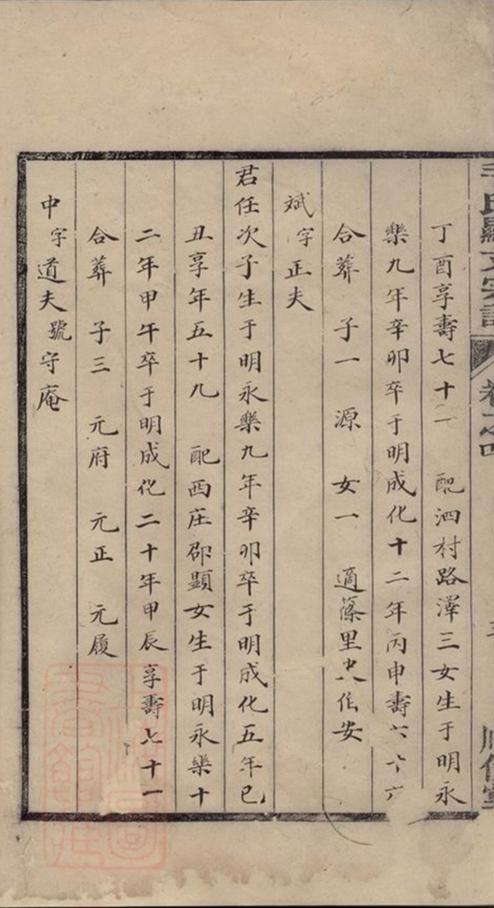 丁酉享壽七十一　配泗村路澤三女生于明永
樂九年辛卯卒于明成化十二年丙申壽六十六
合葬　子一　源　女一　適篠里史
斌字正夫
君任次子生于明永樂九年辛卯卒于明成化五年己
丑享年五十九　配西庄邵顯女生于明永樂十
二年甲午卒于明成化二十年甲辰享壽七十一
合葬　子三　元府　元正　元履
中字道夫號守庵